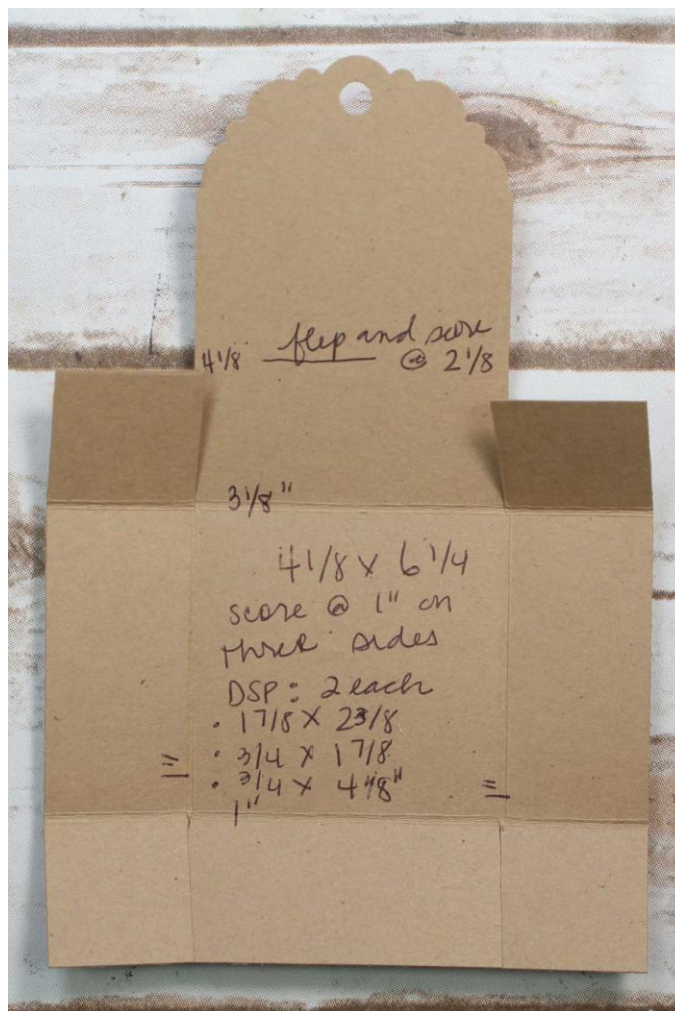 flip and score
4 1/8 @ 2 1/8
3 1/8"
4 1/8 x 6 1/4
score @ 1" on
three sides
DSP: 2 each
• 1 7/8 x 2 3/8
• 3/4 x 1 7/8
• 3/4 x 4 1/8"
1"